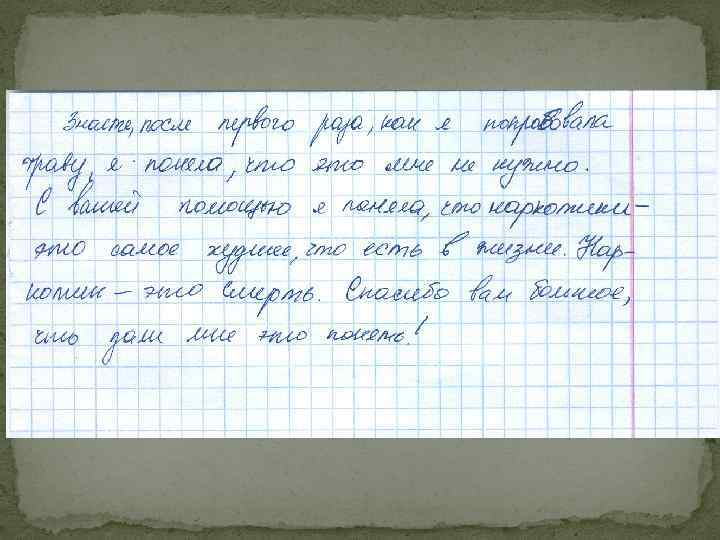 Знаете, после первого раза, как я попробовала
траву, я поняла, что это мне не нужно.
С вашей помощью я поняла, что наркотики –
это самое худшее, что есть в жизни. Нар-
котик – это смерть. Спасибо вам большое,
что дали мне это понять!